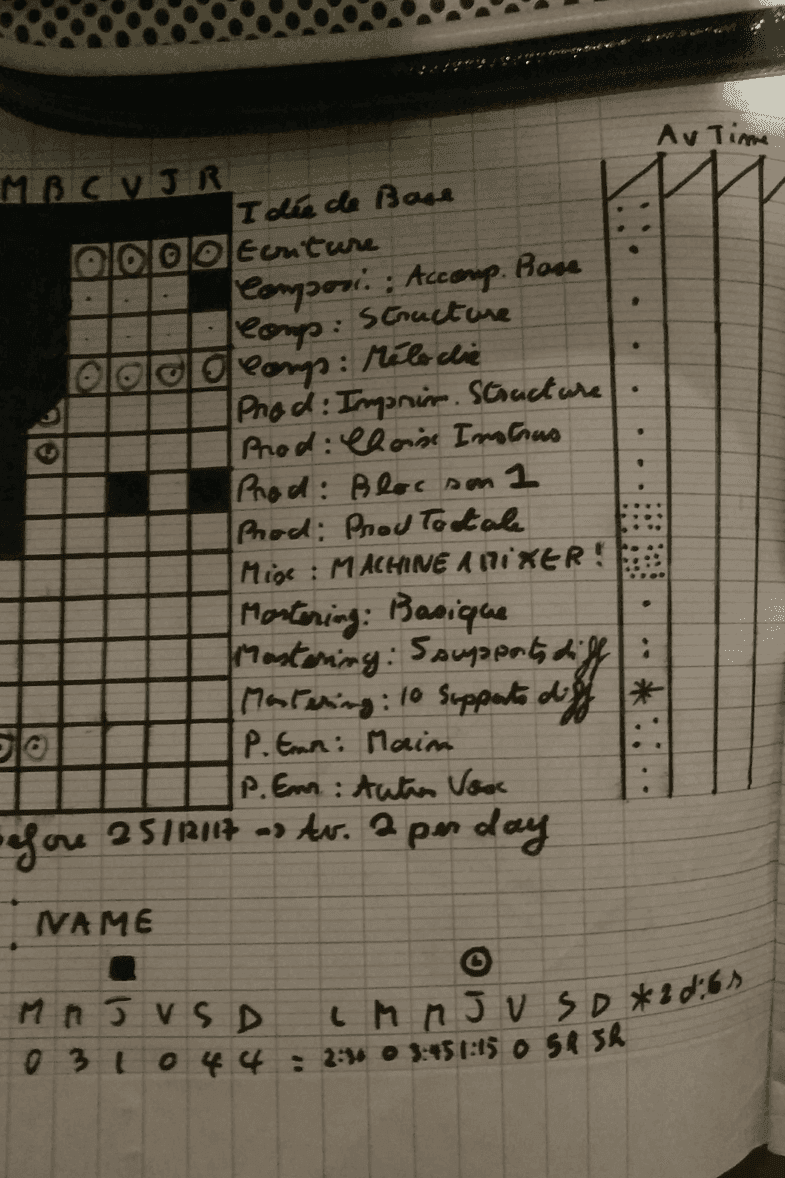 Av Time
M B C V J R
Idée de Base
Ecriture
Composi. : Accomp. Base
Comp : Structure
Comp : Mélodie
Prod : Imprim. Structure
Prod : Choix Instrus
Prod : Bloc son 1
Prod : Prod Totale
Mix : MACHINE A MIXER !
Mastering : Basique
Mastering : 5 supports diff
Mastering : 10 Supports diff
P. Enr : Main
P. Enr : Autres Vox
before 25/12/17 => Av. 2 per day
: NAME
M M J V S D L M M J V S D
0 3 1 0 4 4 = 2:30 0 3:45 1:15 0 5h 5h